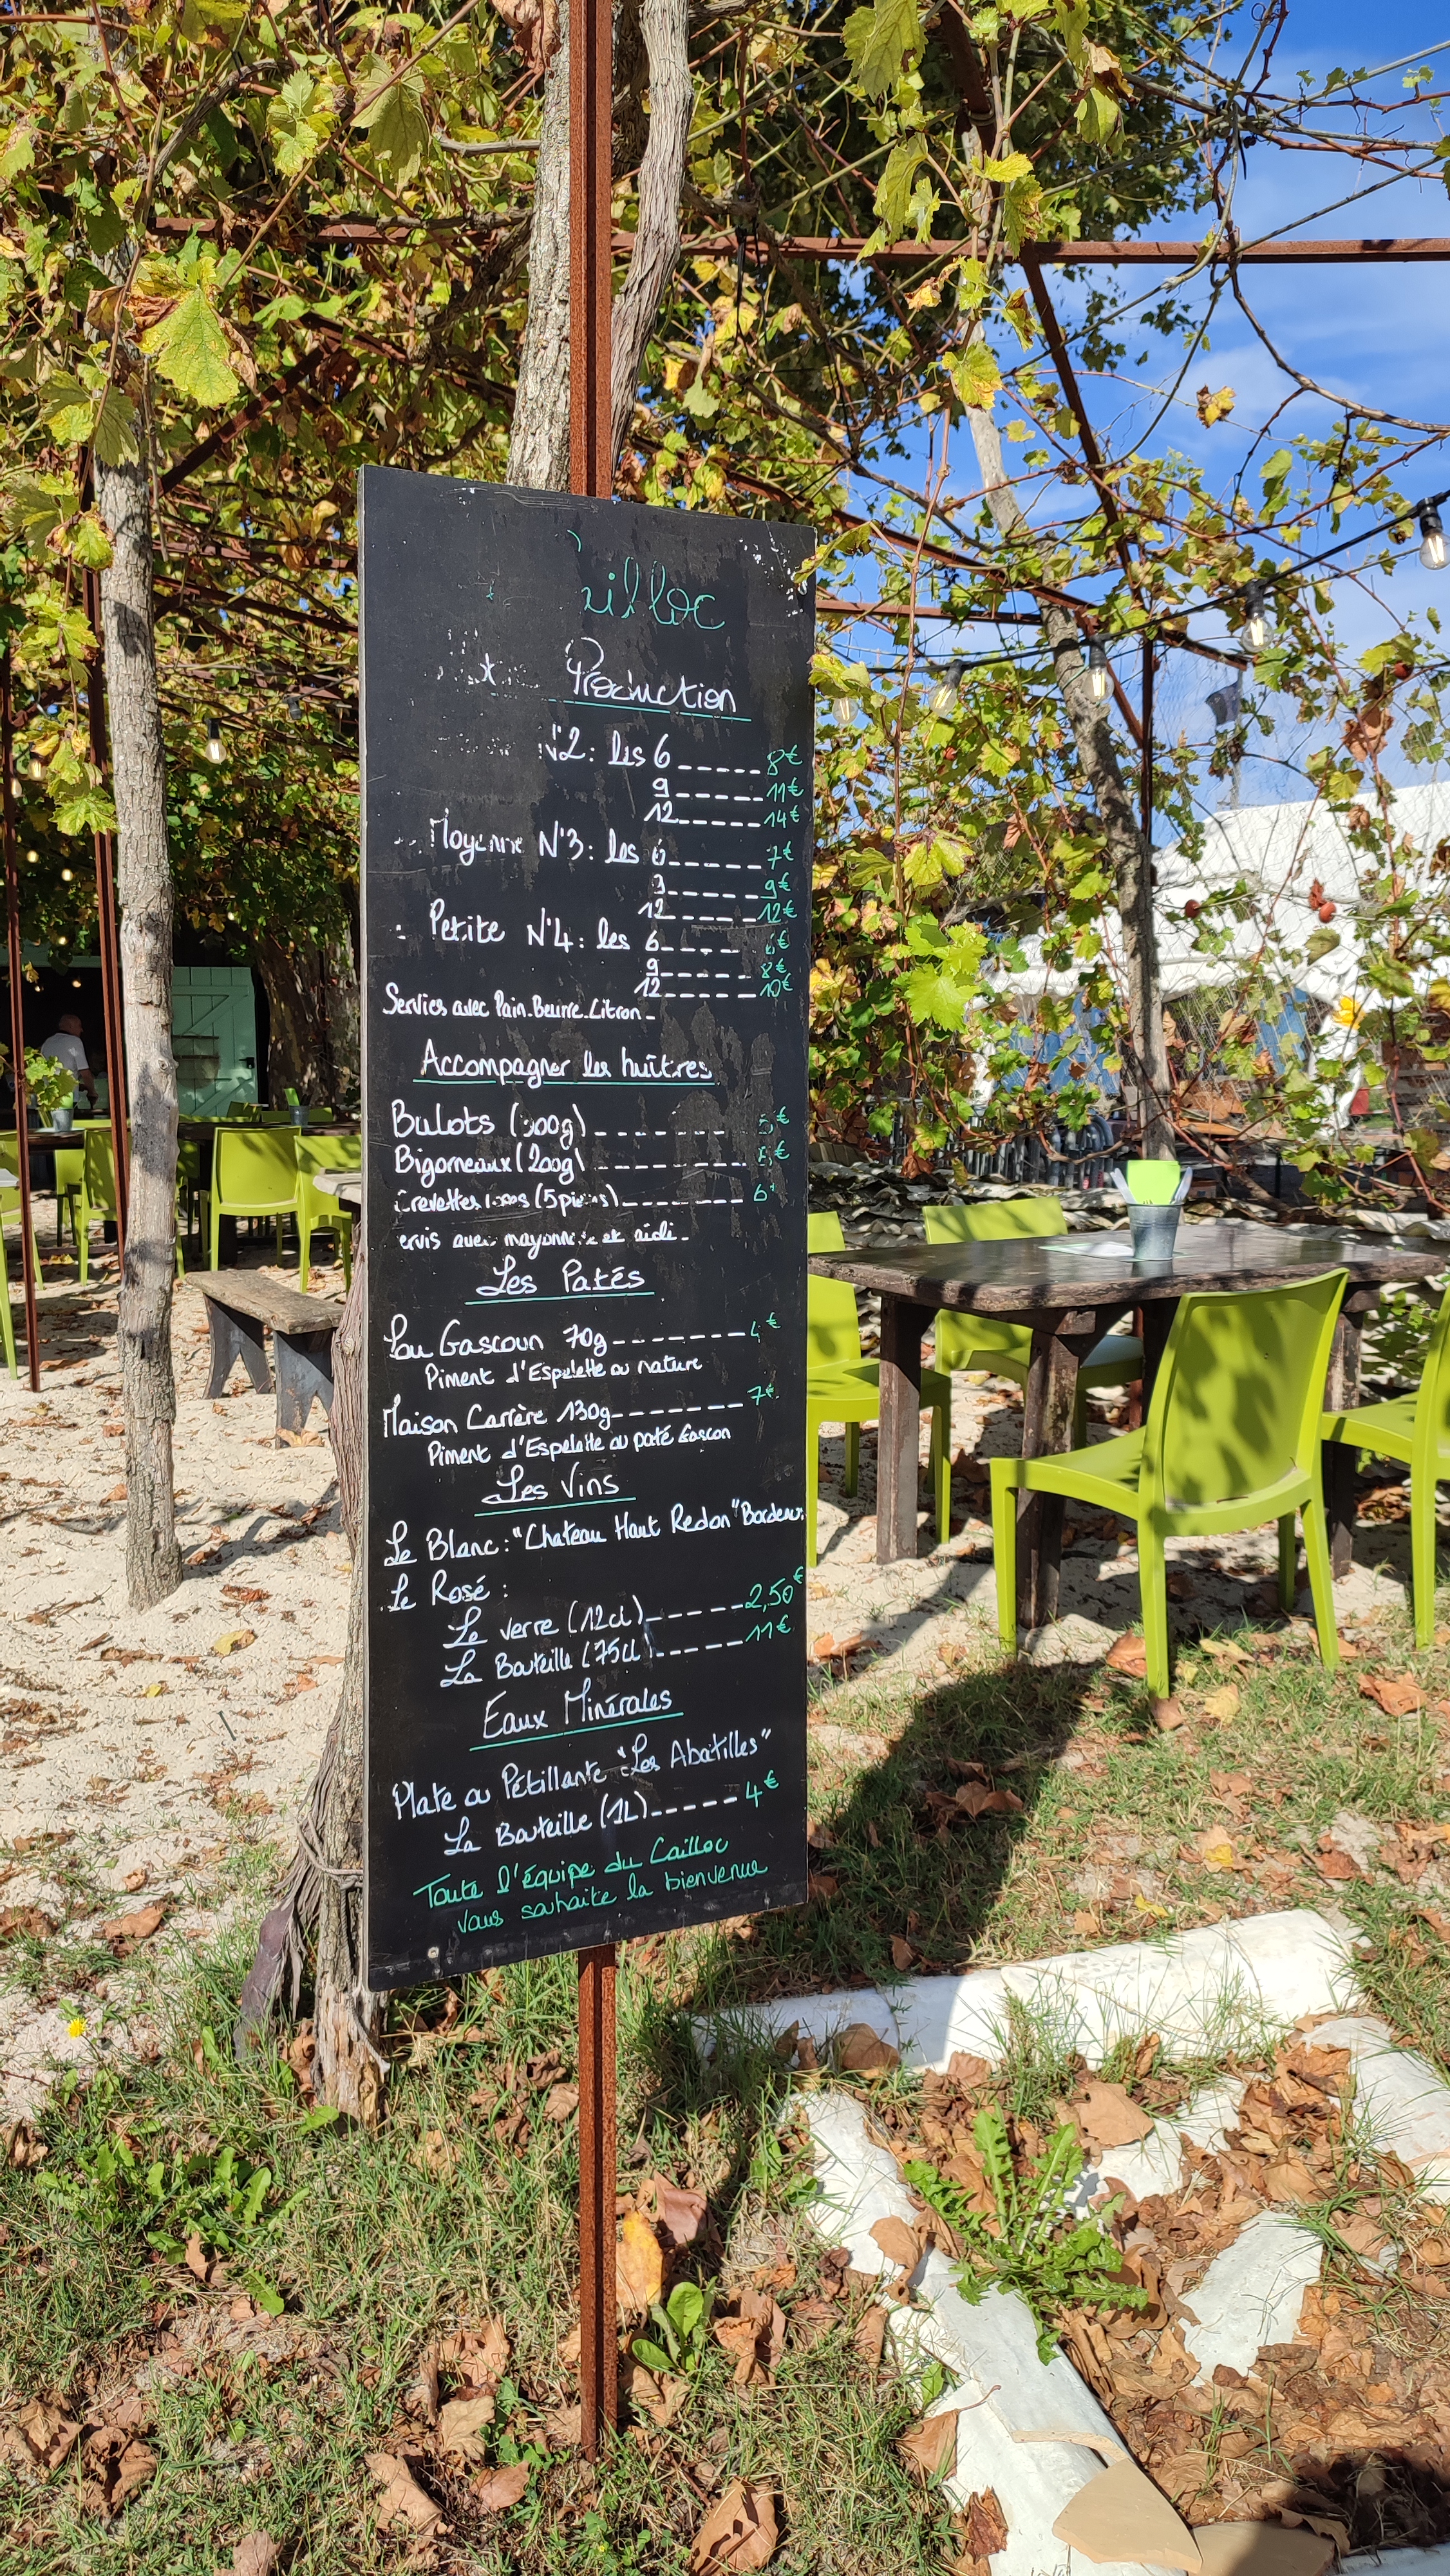 Production
N°2: les 6 ------ 8€
9 ------ 11€
12 ------ 14€
Moyenne N°3: les 6 ------ 7€
9 ------ 9€
12 ------ 12€
Petite N°4: les 6 ----- 6€
9 ------ 8€
12 ------ 10€
Servies avec Pain_Beurre_Citron_
Accompagner les huîtres
Bulots ( -------- 5€
Bigorneaux (200g) ---------
Crevettes (5 pièces) --------- 6
ervis avec mayonnaise et aïoli_
Les Patés
Lou Gascoun 70g ------- 4€
Piment d'Espelette ou nature
Maison Carrère 130g ------- 7€
Piment d'Espelette ou paté Gascon
Les Vins
Le Blanc: "Chateau Haut Redon" Bordeaux
Le Rosé:
Le verre (12cl) ------ 2,50€
La Bouteille (75cl) ------ 11€
Eaux Minérales
Plate ou Pétillante "Les Abatilles"
La Bouteille (1L) ----- 4€
Toute l'équipe du Cailloc
vous souhaite la bienvenue